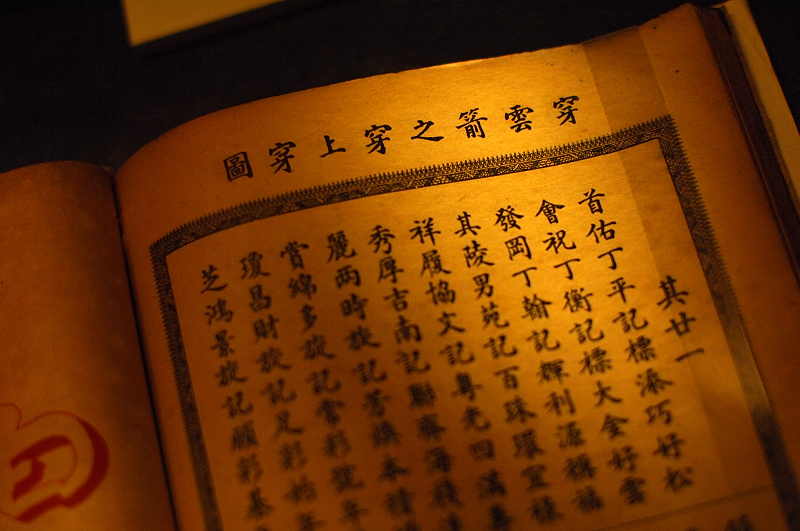 穿雲箭之穿上穿圖
其廿一
首佑丁平記標添巧好松
會祝丁衡記標大金好雲
發岡丁翰記輝利源稱福
其陵男苑記百珠環宜
祥履協文記粵光四滿
秀厚吉南記聯蔡海
麗两時旋記芳煥本
賞綿多旋記常彩號年
瓊昌財旋記足彩始年
芝鴻景旋記顧彩基